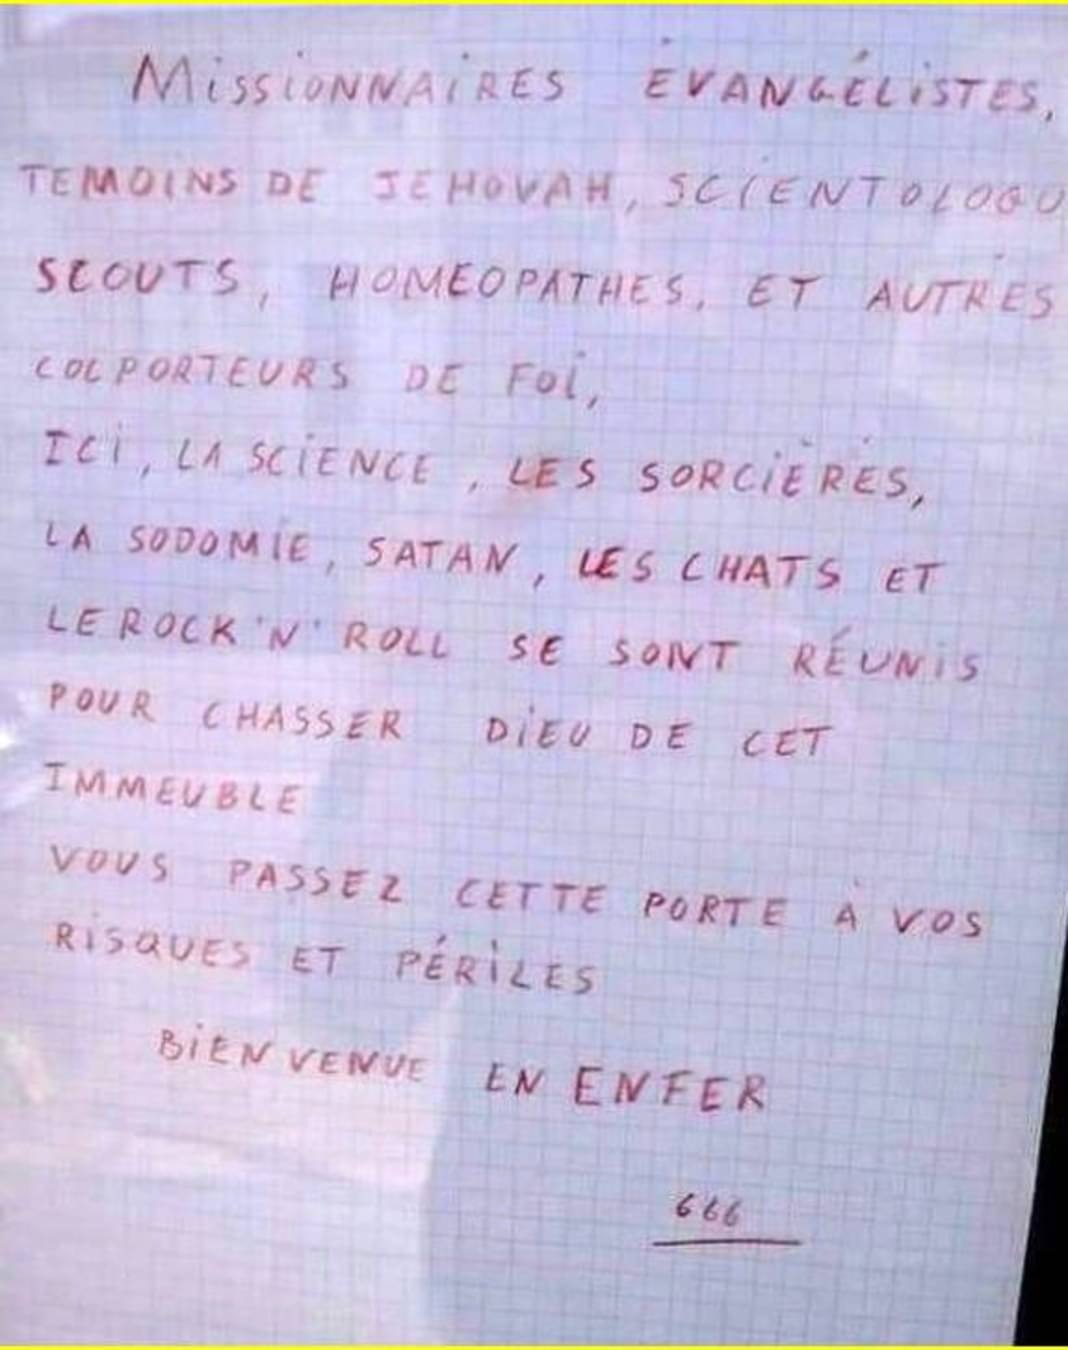 MissiONNAiRES ÉVANGÉLiSTES,
TEMOINS DE JEHOVAH, SCIENTOLOGU
SCOUTS, HOMEOPATHES, ET AUTRES
COLPORTEURS DE FOi,
ICi, LA SCiENCE, LES SORCiÈRES,
LA SODOMIE, SATAN, LES CHATS ET
LE ROCK'N'ROLL SE SONT RÉUNiS
POUR CHASSER DiEU DE CET
IMMEUBLE
VOUS PASSEZ CETTE PORTE À VOS
RiSQUES ET PÉRiLES
BiENVENUE EN ENFER
666